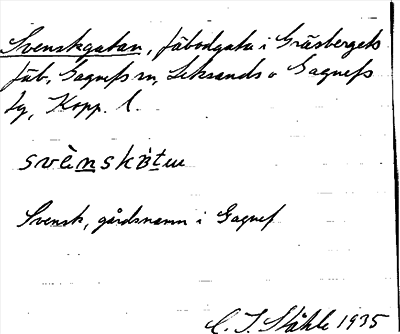 Svenskgatan, fäbodgata i Gräsbergets
fäb, Gagnefs sn, Leksands o Gagnefs
tg, Kopp. l.
svènskɑ̀tɯ
Svensk, gårdsnamn i Gagnef
C. I. Ståhle 1935